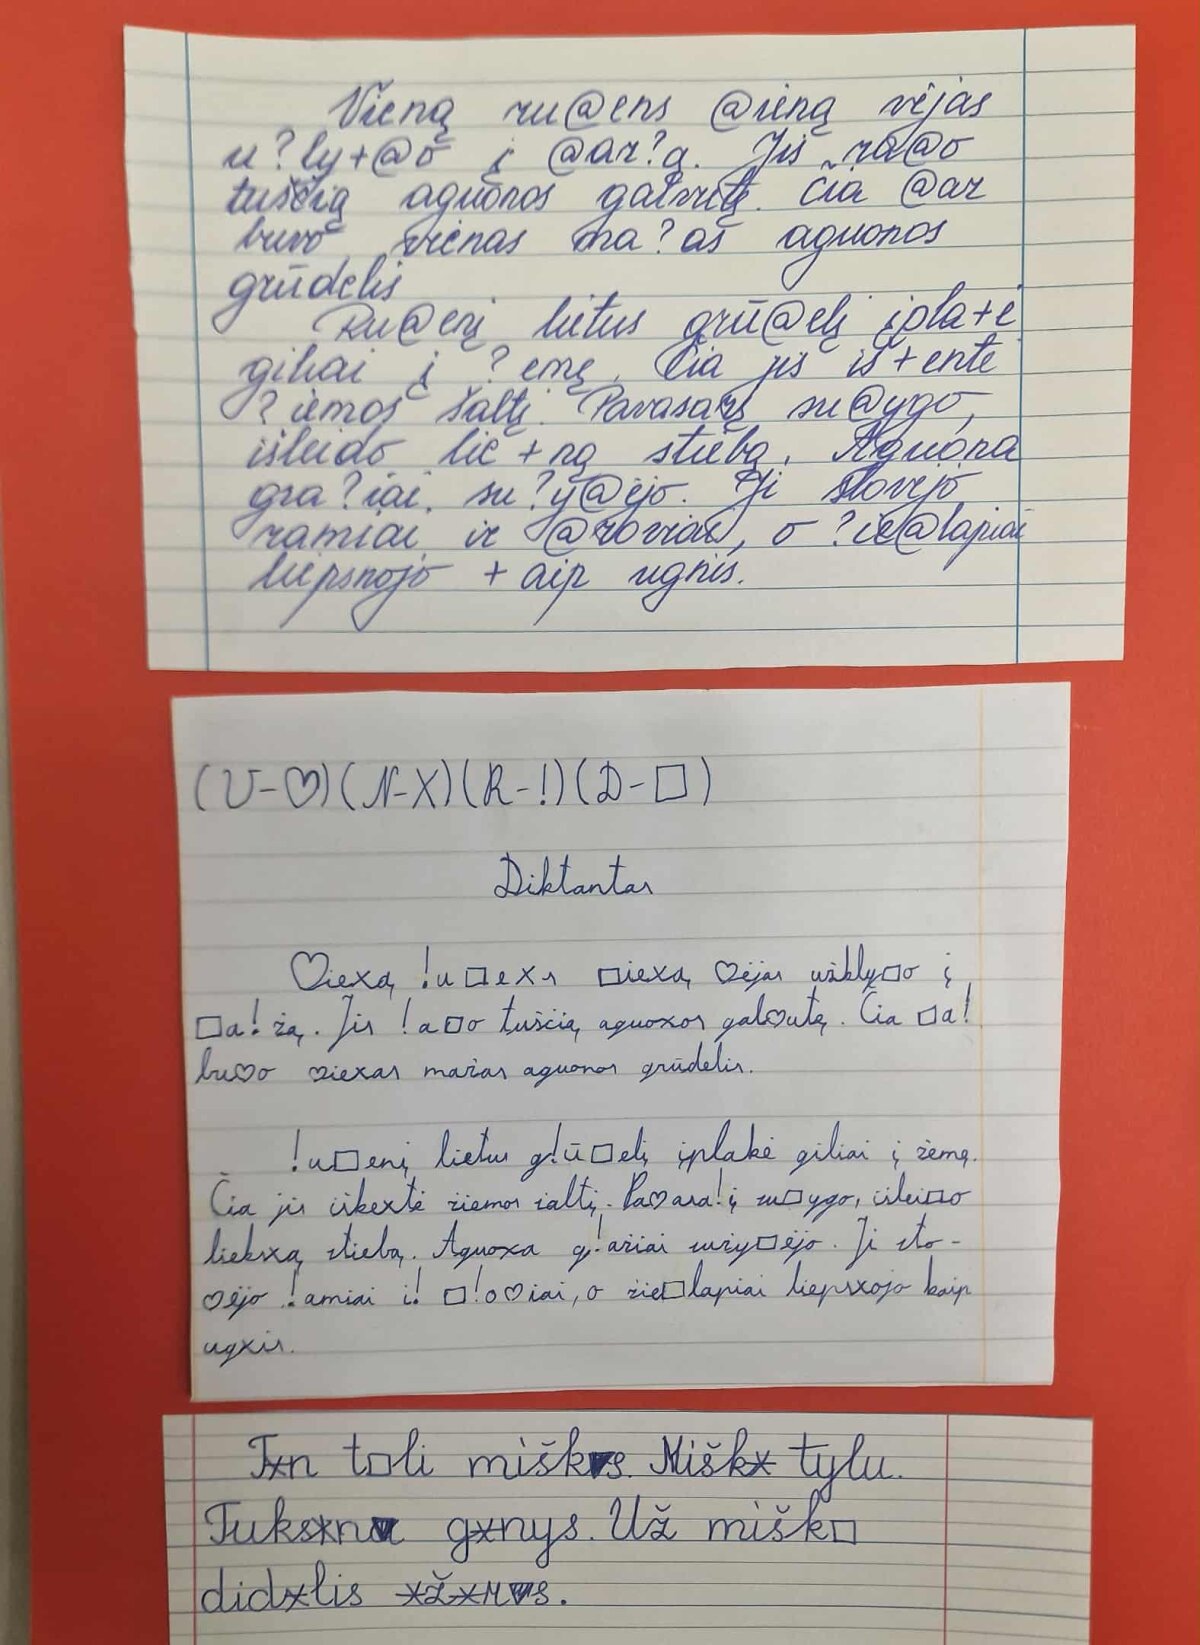 Vieną ru@ens @ieną vėjas
u?ly+@o į @ar?ą. Jis ra@o
tuščią aguonos galvutę. Čia @ar
buvo vienas ma?as aguonos
grūdelis
Ru@enį lietus grū@elį įpla+ė
giliai į ?emę. Čia jis iš+entė
?iemos šaltį. Pavasarį su@ygo,
išleido lie+ną stiebą. Aguona
gra?iai su?y@ėjo. Ji stovėjo
ramiai ir @roviai, o ?ie@lapiai
liepsnojo +aip ugnis.
(V-♡)(N-X)(R-!)(D-□)
Diktantas
♡iexą !u□exs □iexą ♡ėjas užkly□o į
□a!žą. Jis !a□o tuščią aguoxos gal♡utę. Čia □a!
bu♡o ♡iexas mažas aguonos grūdelis.
!u□enį lietus g!ū□elį įplakė giliai į žemę.
Čia jis iškextė žiemos šaltį. Pa♡asa!į su□ygo, išlei□o
lieksxą stiebą. Aguoxa g!ažiai sužy□ėjo. Ji sto-
♡ėjo !amiai i! □!o♡iai, o žie□lapiai liepsxojo kaip
ugxis.
T×n t□li mišk▼s. Mišk× tylu.
Tuks×n▼ g×nys. Už mišk□
did×lis ×ž×r▼s.